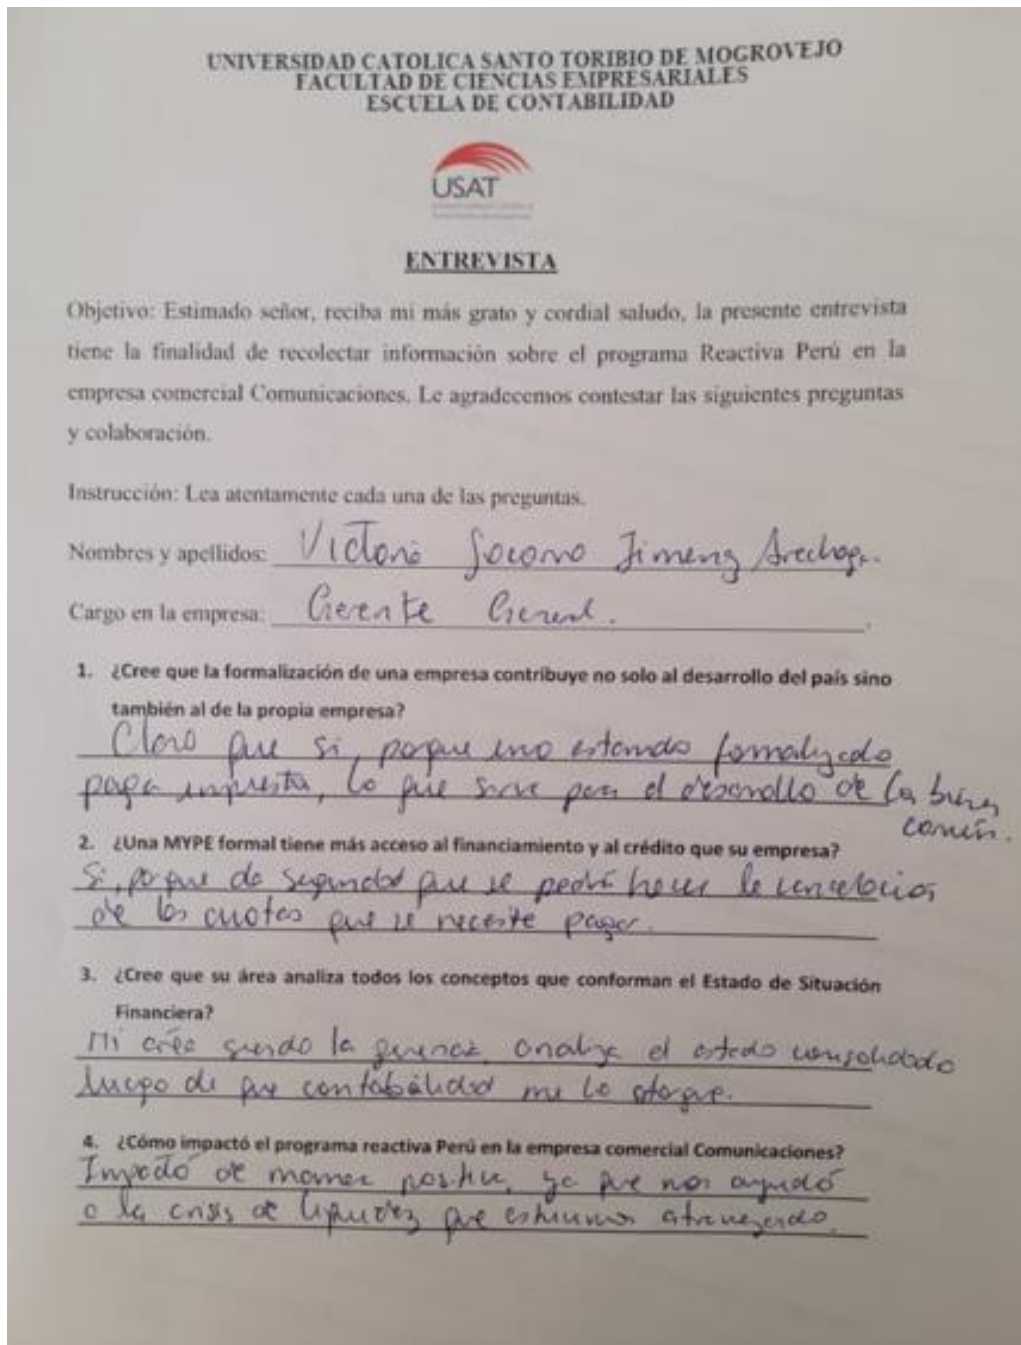 UNIVERSIDAD CATOLICA SANTO TORIBIO DE MOGROVEJO
FACULTAD DE CIENCIAS EMPRESARIALES
ESCUELA DE CONTABILIDAD
USAT
ENTREVISTA
Objetivo: Estimado señor, reciba mi más grato y cordial saludo, la presente entrevista
tiene la finalidad de recolectar información sobre el programa Reactiva Perú en la
empresa comercial Comunicaciones. Le agradecemos contestar las siguientes preguntas
y colaboración.
Instrucción: Lea atentamente cada una de las preguntas.
Nombres y apellidos: Victoria Socorro Jimenez
Cargo en la empresa: Gerente General.
1. ¿Cree que la formalización de una empresa contribuye no solo al desarrollo del país sino
también al de la propia empresa?
Claro que si, porque uno estando formalizado
paga impuesto, lo que sirve para el desarrollo de
común.
2. ¿Una MYPE formal tiene más acceso al financiamiento y al crédito que su empresa?
Si, porque da seguridad que se podrá hacer la cancelación
de las cuotas que se necesite pagar.
3. ¿Cree que su área analiza todos los conceptos que conforman el Estado de Situación
Financiera?
Mi área siendo la gerencia, analiza el estado consolidado
luego de que contabilidad me lo otorgue.
4. ¿Cómo impactó el programa reactiva Perú en la empresa comercial Comunicaciones?
Impactó de manera positiva, ya que nos ayudó
a la crisis de liquidez que estuvimos atravezando.